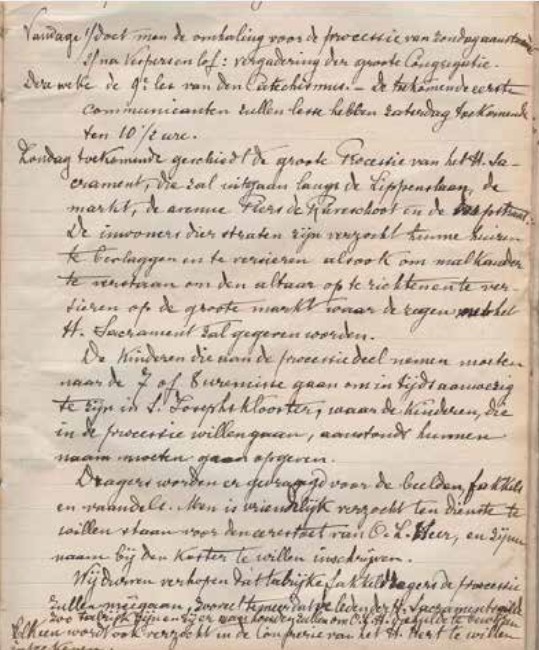 Vandage 1/ doet men de omhaling voor de processie van zondag aanstaande
2/ na Vespers en lof: vergadering der groote Congregatie.
Deze weke de 9e les van den Catechismus. – De toekomende eerste
communicanten zullen lesse hebben zaterdag toekomende
ten 10 1/2 ure.
Zondag toekomende geschiedt de groote Processie van het H. Sa-
crament, die zal uitgaan langs de Lippenslaan, de
markt, de avenue Piers de Raveschoot en de
De inwoners dier straten zijn verzocht hunne huizen
te bevlaggen en te versieren alsook om malkander
te verstaan om den altaar op te richten en te ver-
sieren op de groote markt waar de zegen met het
H. Sacrament zal gegeven worden.
De Kinderen die aan de processie deel nemen moeten
naar de 7 of 8 uremisse gaan om in tijds aanwezig
te zijn in S. Josephsklooster, waar de kinderen, die
in de processie willen gaan, aanstonds hunnen
naam moeten gaan opgeven.
Dragers worden er gevraagd voor de beelden, fakkels
en vaandels. Men is vriendelijk verzocht ten dienste te
willen staan voor den eerestoet van O. L. Heer, en zijnen
naam bij den Koster te willen inschrijven.
Wij durven verhopen dat talrijke fakkeldragers de processie
zullen meegaan, zooveel de leden der H. Sacramentsgilde
zoo talrijk zijn en er aan houden zullen om O. L. H.
Elkeen wordt ook verzocht in de Confrerie van het H. Hert te willen